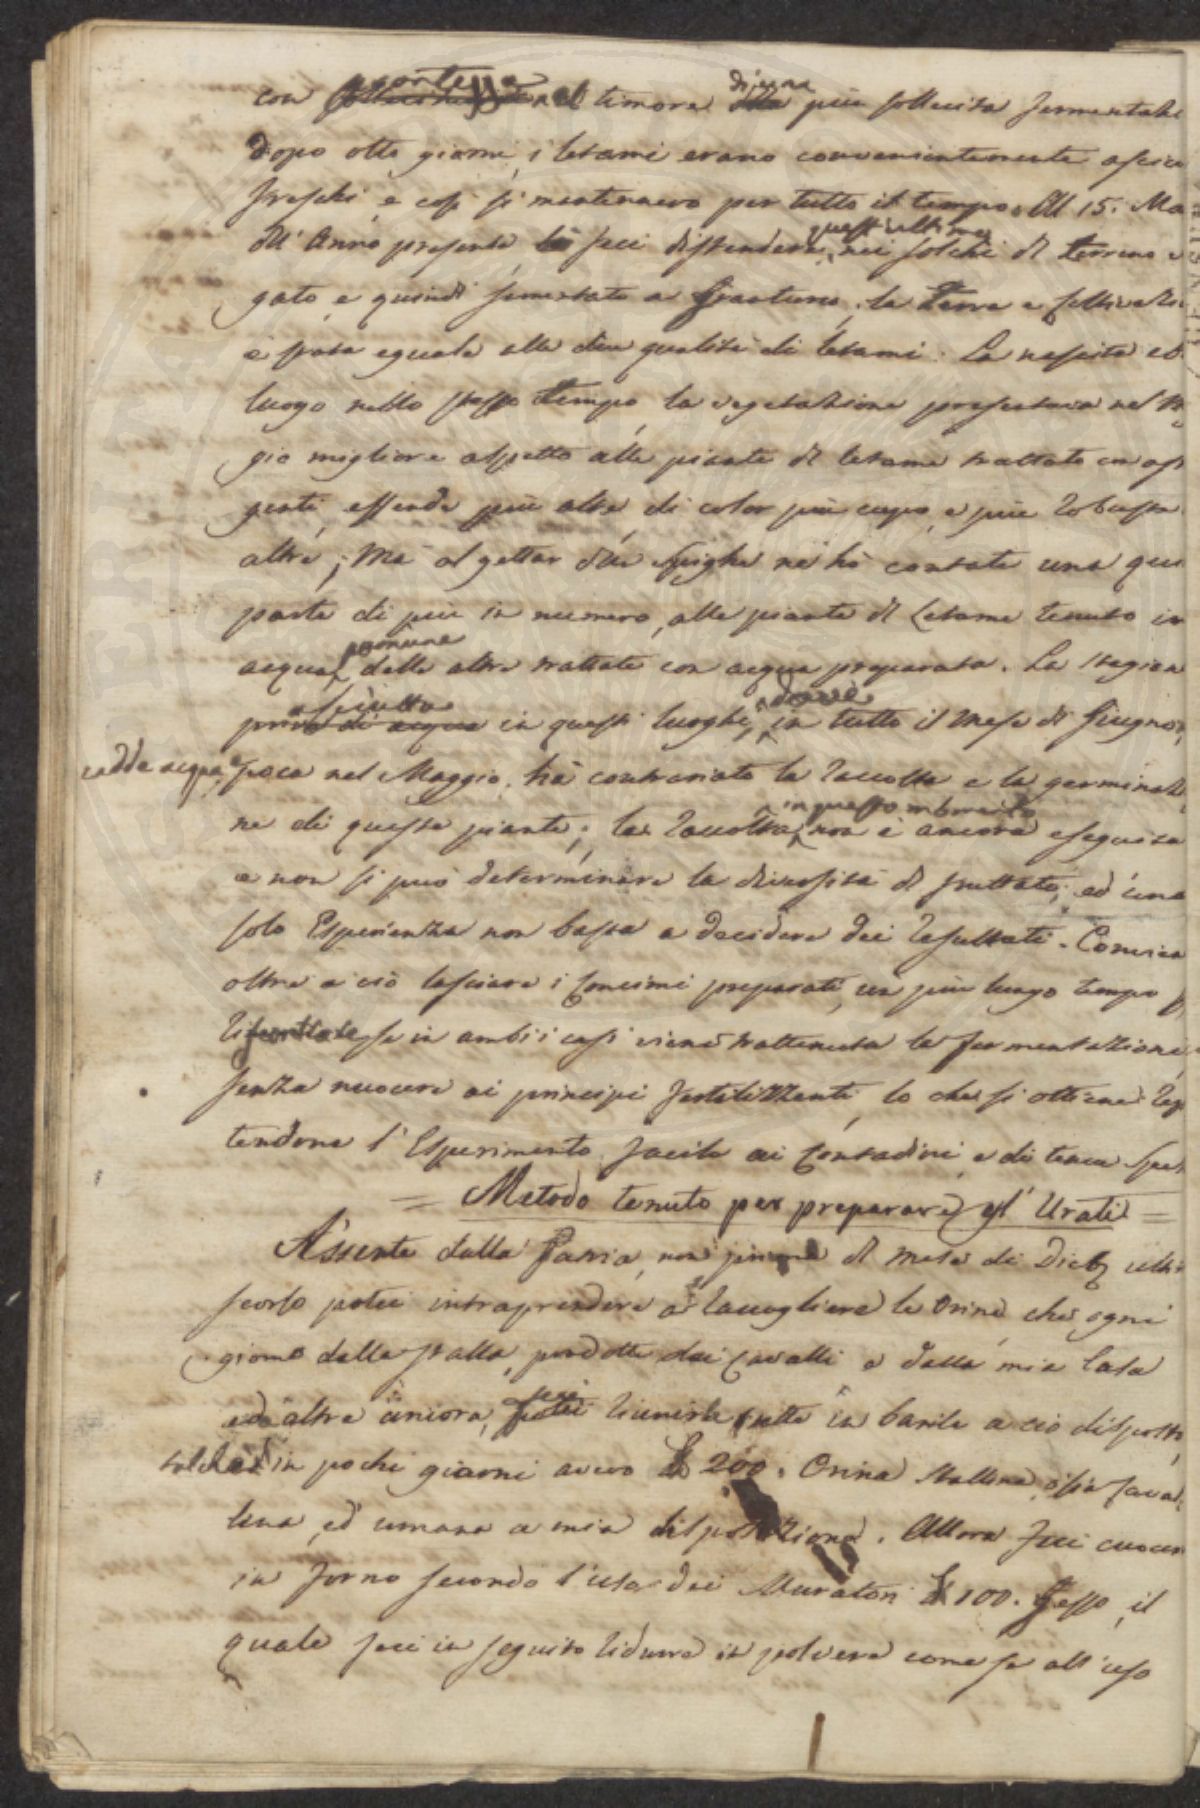 con nel timore di una più sollecita fermentazi
Dopo otto giorni, i letami erano convenientemente asciu
freschi e così si mantennero per tutto il tempo. Al 15. Ma
dell' Anno presente li feci distendere questi ultimi nei solchi di terreno
gato, e quindi sementato a frantumo; la terra e coltivazio
è stata eguale alle due qualità di letami. La nascita eb
luogo nello stesso tempo, la vegetazione presentava nel M
gio migliore aspetto alle piante di letame trattato con as
genti, essendo più alte, di color più cupo, e più robuste
altre; Ma al gettar delle spighe ne hò contate una qui
parte di più in numero, alle piante di Letame tenuto in
acqua comune, delle altre trattate con acqua preparata. La stagion
asciutta in questi luoghi, dove in tutto il Mese di Giugno
cadde acqua, e poca nel Maggio, hà contrariato la raccolta e la germinazi
ne di queste piante; la raccolta in questo momento non è ancora eseguita
e non si può determinare la diversità di fruttato; ed una
sola Esperienza non basta a decidere dei resultati. Convien
oltre a ciò lasciare i Concimi preparati, un più lungo tempo p
se in ambi i casi viene trattenuta la fermentazione,
senza nuocere ai principi fertilizzanti, lo che si ottiene rep
tendone l'Esperimento, facile ai Contadini, e di tenue spes
= Metodo tenuto per preparare gl' Urati =
Assente dalla Patria, non prima di metà di Dicb ulti
scorso potei intraprendere a raccogliere le Orine, che ogni
giorno dalla stalla, prodotte dai Cavalli e dalla mia Casa
ed altre ancora, feci riunirle tutte in barile a ciò disposto,
talchè in pochi giorni avevo ℔ 200. Orina Stallina, ossia Caval
lina, ed umana a mia disposizione. Allora feci cuocer
in forno secondo l'uso dei Muratori ℔ 100. Gesso, il
quale feci in seguito ridurre in polvere come se all'uso